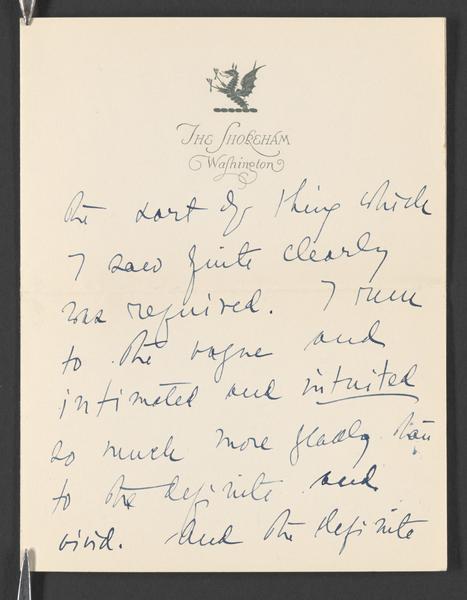 The Shoreham
Washington
the sort of thing which
I saw quite clearly
was required. I run
to the vague and
intimated and intuited
so much more gladly than
to the definite and
vivid. And the definite